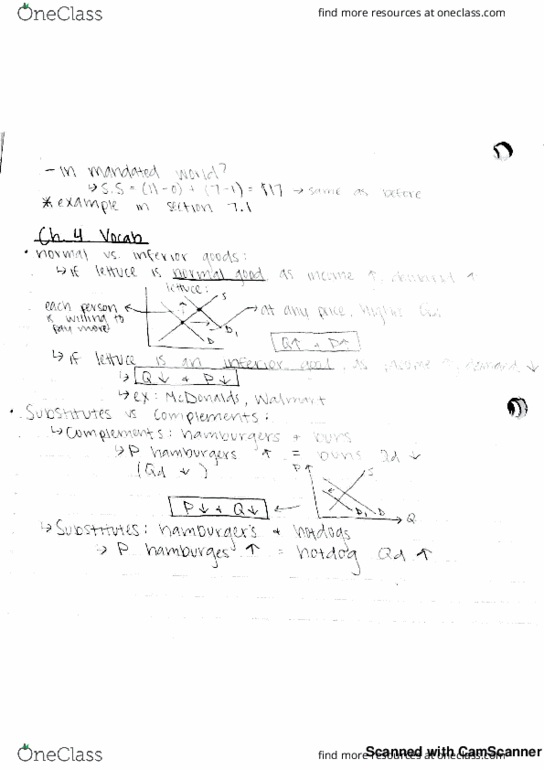 OneClass
find more resources at oneclass.com
- in mandated world?
↳ S.S = (11-0) + (7-1) = $17 → same as before
* example in section 7.1
Ch. 4 Vocab
• normal vs. inferior goods:
↳ if lettuce is normal good as income ↑, demand ↑
lettuce:
S
each person is willing to pay more
→ at any price, higher Qd
D
D1
Q↑ + P↑
↳ if lettuce is an inferior good, as income ↑, demand ↓
↳ Q↓ + P↓
↳ ex: McDonalds, Walmart
• Substitutes vs complements:
↳ Complements: hamburgers + buns
↳ P hamburgers ↑ = buns Qd ↓
(Qd ↓)
P
S
P↓ + Q↓
D1
D
Q
↳ Substitutes: hamburger's + hotdogs
↳ P hamburges ↑ = hotdog Qd ↑
OneClass
find more resources at oneclass.com
Scanned with CamScanner